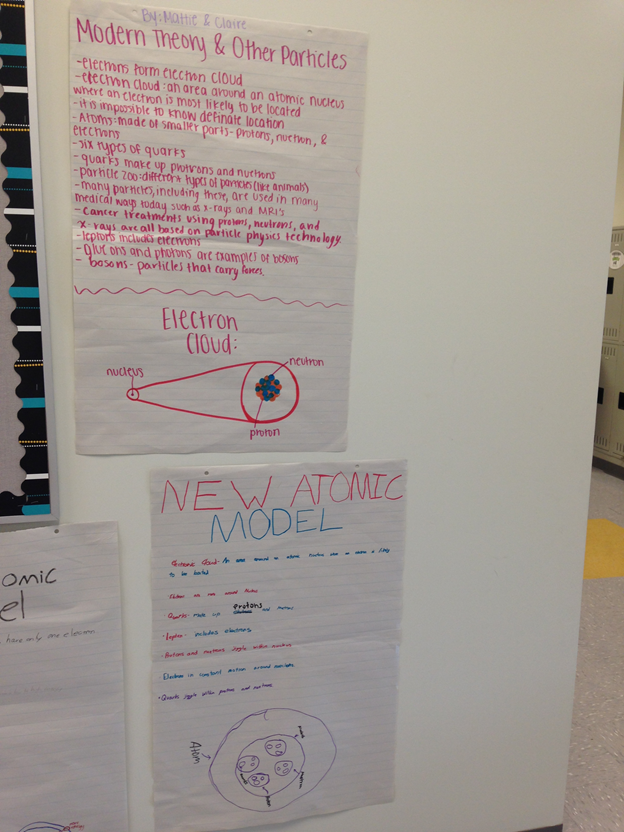 By: Mattie & Claire
Modern Theory & Other Particles
-electrons form electron cloud
-electron cloud: an area around an atomic nucleus
where an electron is most likely to be located
-it is impossible to know definate location
-Atoms: made of smaller parts-protons, nuetron, &
electrons
-six types of quarks
-quarks make up protrons and nuetrons
-particle zoo: different types of particles (like animals)
-many particles, including these, are used in many
medical ways today such as x-rays and MRI's
-cancer treatments using protons, neutrons, and
x-rays are all based on particle physics technology
-leptons includes electrons
-Glue ons and photons are examples of bosons
-bosons- particles that carry forces.
Electron
Cloud:
nucleus
neutron
proton
NEW ATOMIC
MODEL
Cloud- An area around an atomic
to be located
Quarks- make up protons and
-Lepton- includes electrons
-Protons and neutrons jiggle within
-Electron in constant motion around
-Quarks jiggle within protons and neutrons
Atom
omic
el
have only one electron